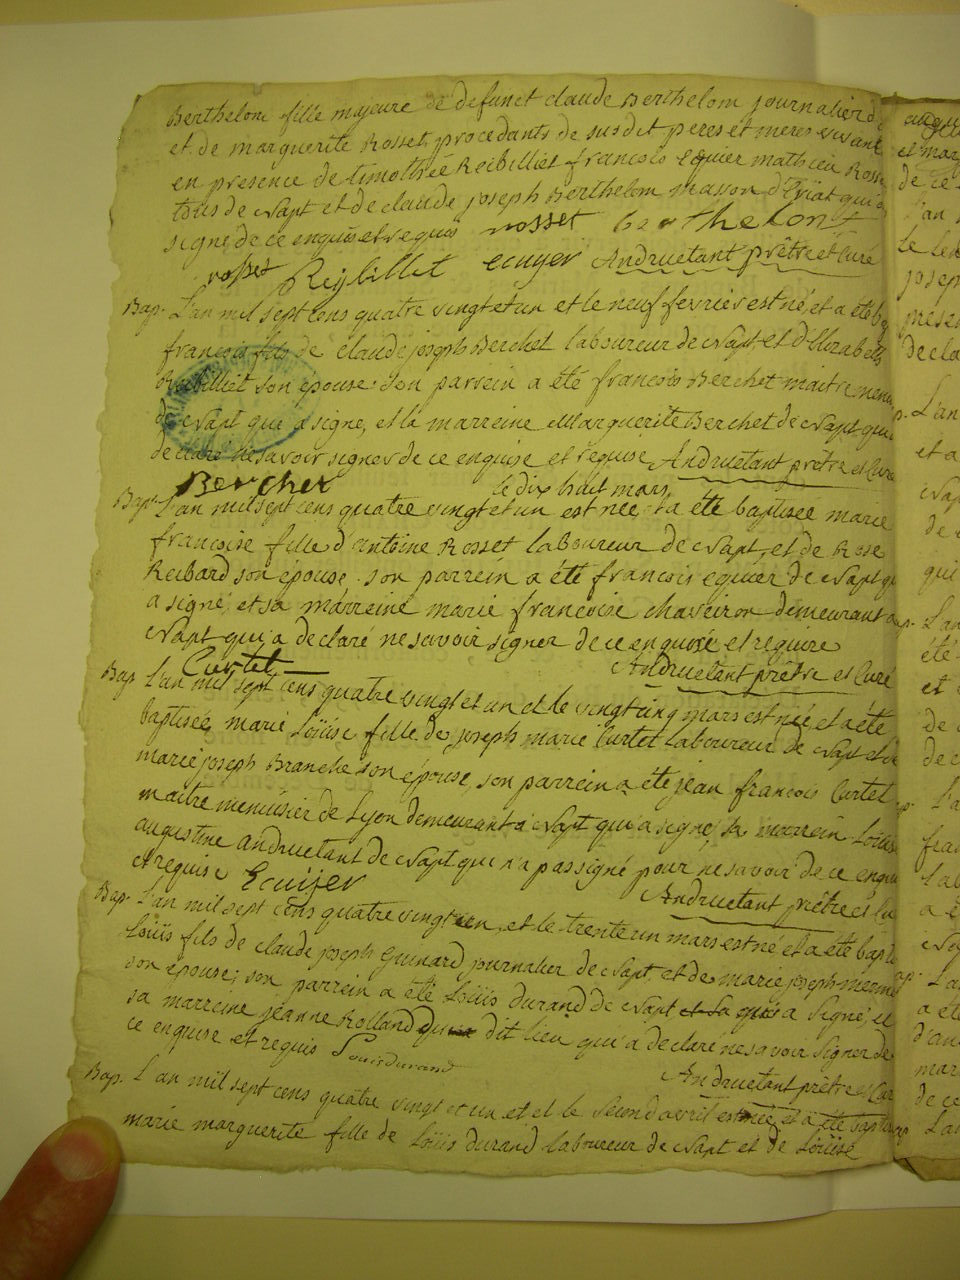 Berthelom fille majeure de defunct claude Berthelom journalier d
et de marguerite Rosset procedants de susdit peres et meres vivant
en presence de timothée Reibilliet francois equier mathieu Rosse
tous de Napt et de claude joseph Berthelom masson d'Eriat qui o
signé de ce enquis et requis nosset berthelont
rosset Reybillet ecuyer Andruetant prêtre et Curé
Bap. L'an mil sept cens quatre vingt et un et le neuf fevrier est né, et a été b
francois fils de claude joseph Berchet laboureur de Napt et d'Elizabeth
Reibilliet son epouse. son parrein a été francois Berchet maitre menu
de Napt qui a signé, et la marreine Marguerite Berchet de Napt qui a
declaré ne savoir signer de ce enquise et requise Andruetant prêtre et Curé
Berchet le dix huit mars
Bap. L'an mil sept cens quatre vingt et un est née et a été baptisée marie
francoise fille d'antoine Rosset laboureur de Napt, et de Rose
Reibard son épouse. son parrein a été francois equier de Napt q
a signé, et sa marreine marie francoise chaveiron demeurant a
Napt qui a declaré ne savoir signer de ce enquise et requise
Curtet Andruetant prêtre et Curé
Bap L'an mil sept cens quatre vingt et un et le vingt cinq mars est née et a été
baptisée marie Loüise fille de joseph marie Curtet Laboureur de Napt et de
marie joseph Branche son épouse, son parrein a été jean francois Curtet
maitre menuisier de Lyon demeurant a Napt qui a signé, sa marrein Loüis
augustine andruetant de Napt qui n'a pas signé pour ne savoir de ce enqui
et requise Ecuijer Andruetant prêtre et Cu
Bap. L'an mil sept cens quatre vingt un, et le trente un mars est né et a été bapt
Loüis fils de claude joseph Guinard journalier de Napt, et de marie joseph merme
son epouse; son parrein a été Loüis durand de Napt et sa qui a signé, et
sa marreine jeanne Rolland du dit lieu qui a declaré ne savoir signer de
ce enquise et requis Louis durand Andruetant prêtre et Cur
Bap. L'an mil sept cens quatre vingt et un et et le second avril est née, et a été baptis
marie marguerite fille de Loüis durand laboureur de Napt et de Loüise